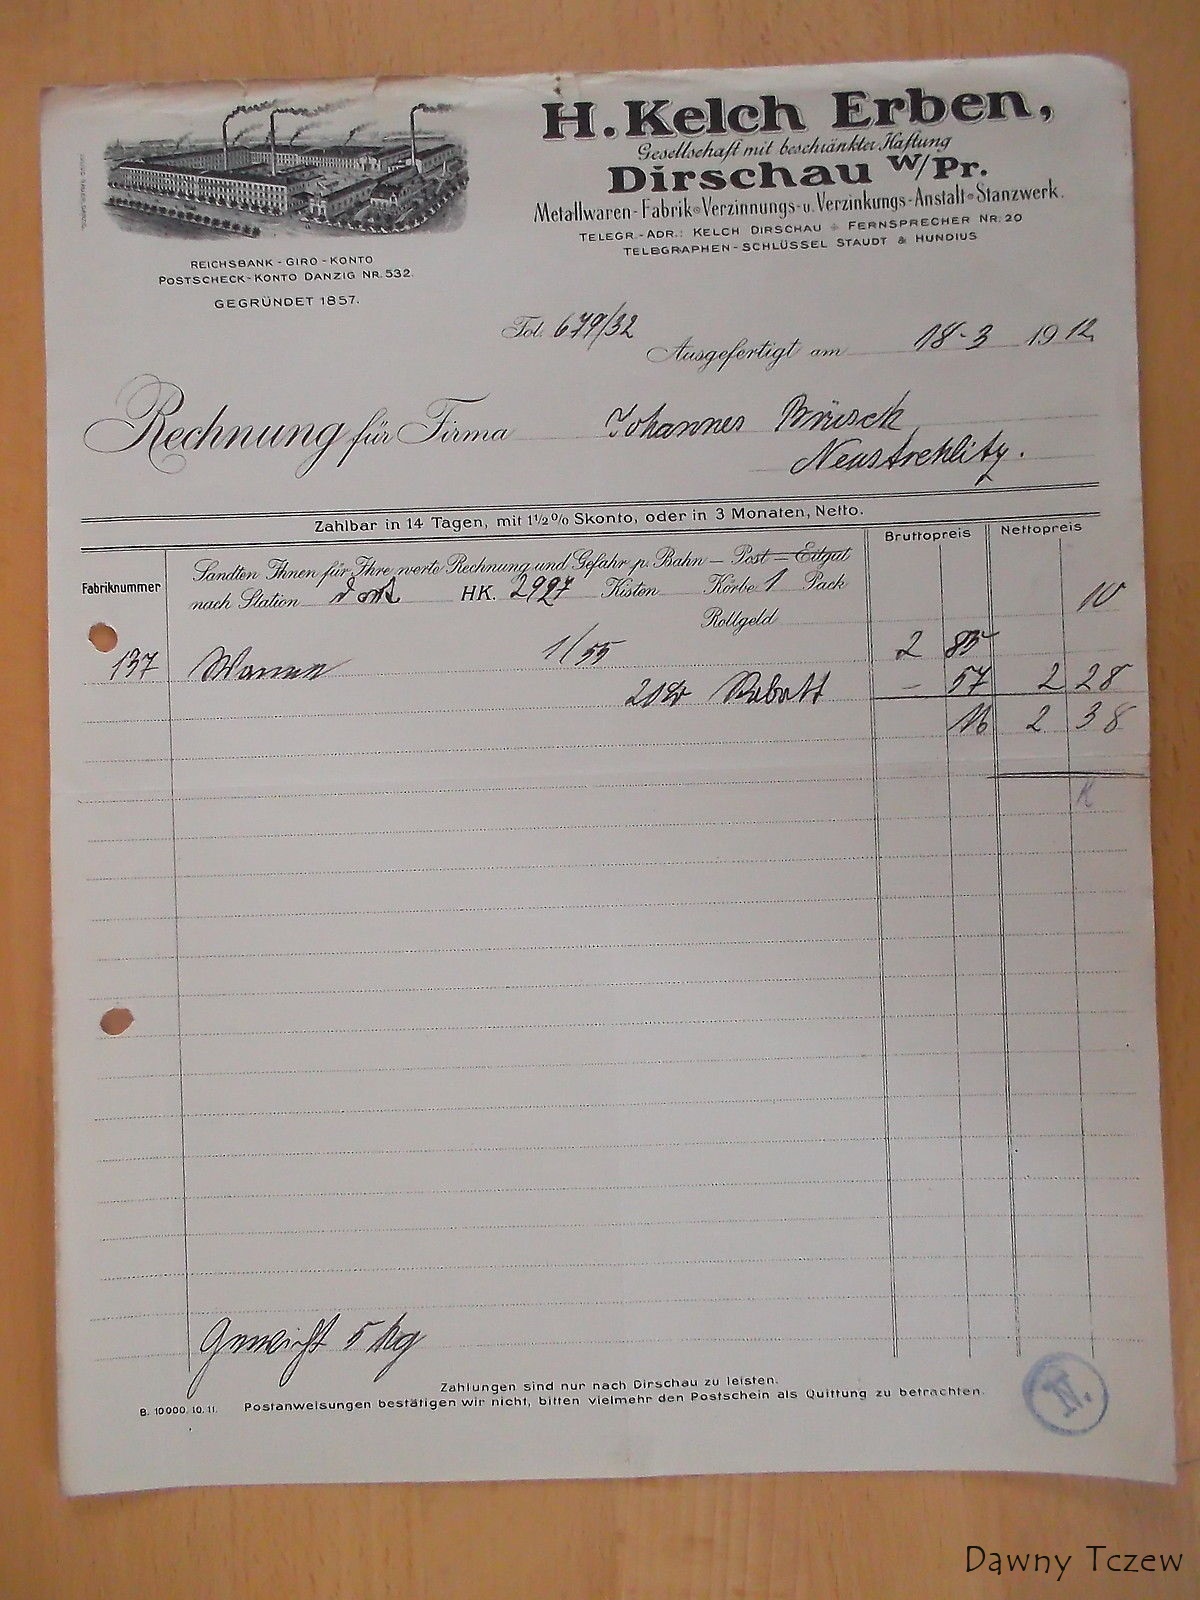 H. Kelch Erben,
Gesellschaft mit beschränkter Haftung
Dirschau W/Pr.
Metallwaren-Fabrik Verzinnungs- u. Verzinkungs-Anstalt Stanzwerk.
TELEGR.-ADR.: KELCH DIRSCHAU FERNSPRECHER NR. 20
TELEGRAPHEN-SCHLÜSSEL STAUDT & HUNDIUS
REICHSBANK-GIRO-KONTO
POSTSCHECK-KONTO DANZIG NR. 532.
GEGRÜNDET 1857.
Fol. 679/32
Ausgefertigt am 18-3 1912
Rechnung für Firma Johannes
Neustrehlitz.
Zahlbar in 14 Tagen, mit 1½% Skonto, oder in 3 Monaten, Netto.
Fabriknummer
Bruttopreis Nettopreis
Sandten Ihnen für Ihre werte Rechnung und Gefahr p. Bahn – Post – Eilgut
nach Station HK. 2927 Kisten Körbe 1 Pack
Rollgeld 10
137 1/55 2 85
Rabatt – 57 2 28
2 38
Gewicht 5 kg
Zahlungen sind nur nach Dirschau zu leisten.
B. 10000. 10. 11. Postanweisungen bestätigen wir nicht, bitten vielmehr den Postschein als Quittung zu betrachten.
IV.
Dawny Tczew